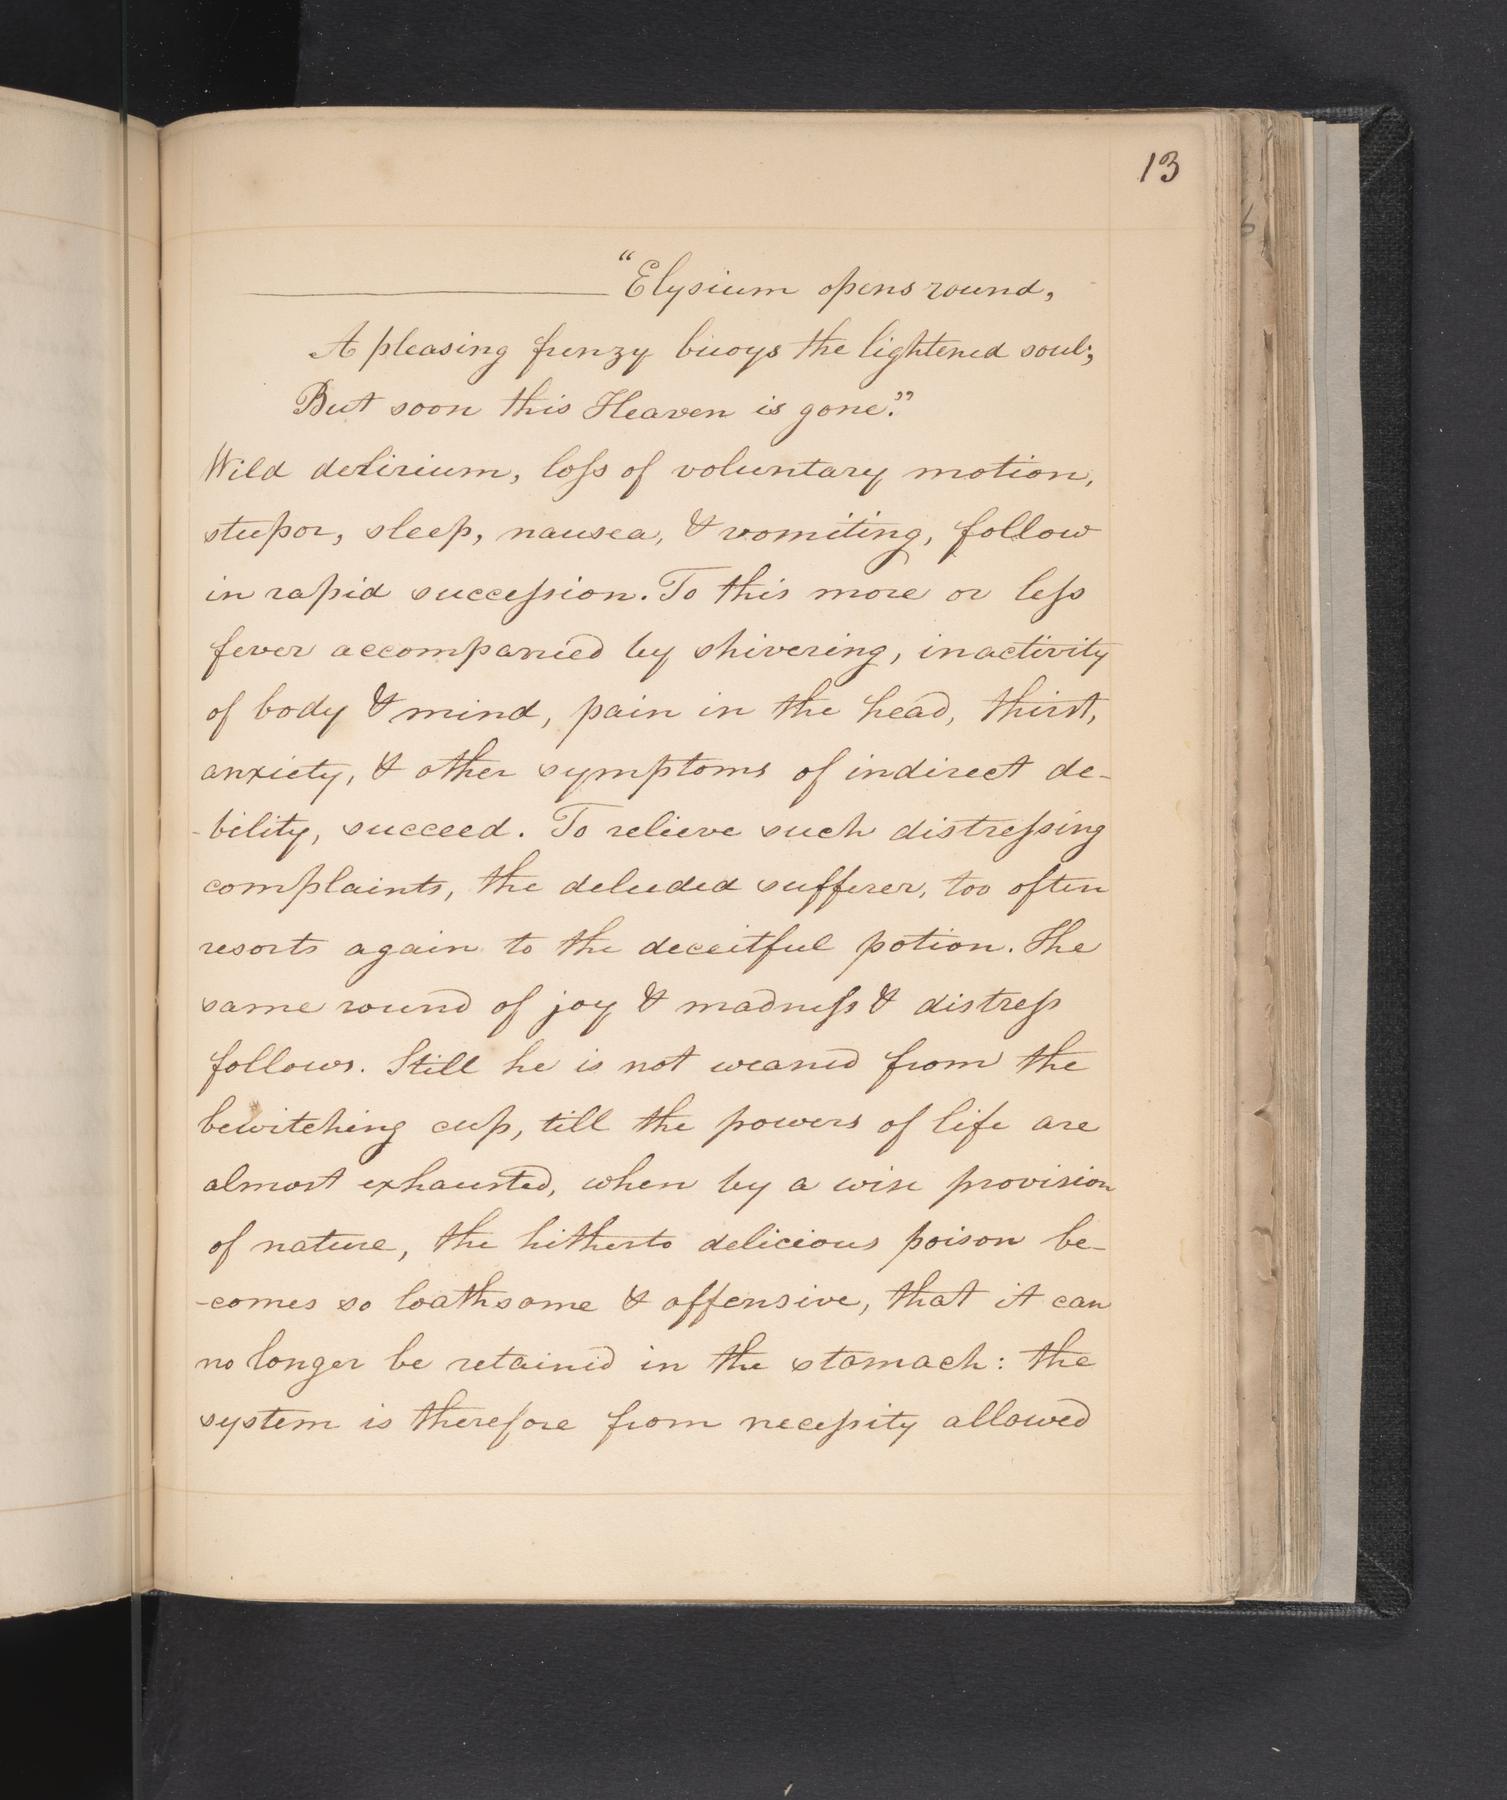 13
"Elysium opens round,
A pleasing frenzy buoys the lightened soul;
But soon this Heaven is gone."
Wild delirium, loſs of voluntary motion,
stupor, sleep, nausea, & vomiting, follow
in rapid succeſsion. To this more or leſs
fever accompanied by shivering, inactivity
of body & mind, pain in the head, thirst,
anxiety, & other symptoms of indirect de-
-bility, succeed. To relieve such distreſsing
complaints, the deluded sufferer, too often
resorts again to the deceitful potion. The
same round of joy & madneſs & distreſs
follows. Still he is not weaned from the
bewitching cup, till the powers of life are
almost exhausted, when by a wise provision
of nature, the hitherto delicious poison be-
-comes so loathsome & offensive, that it can
no longer be retained in the stomach: the
system is therefore from neceſsity allowed